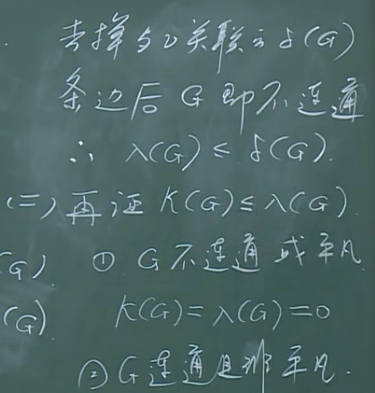 去掉与v关联的δ(G)
条边后G即不连通
∴ λ(G) ≤ δ(G).
(二) 再证 K(G) ≤ λ(G).
G) ① G不连通或平凡
(G) K(G) = λ(G) = 0
② G连通且非平凡.